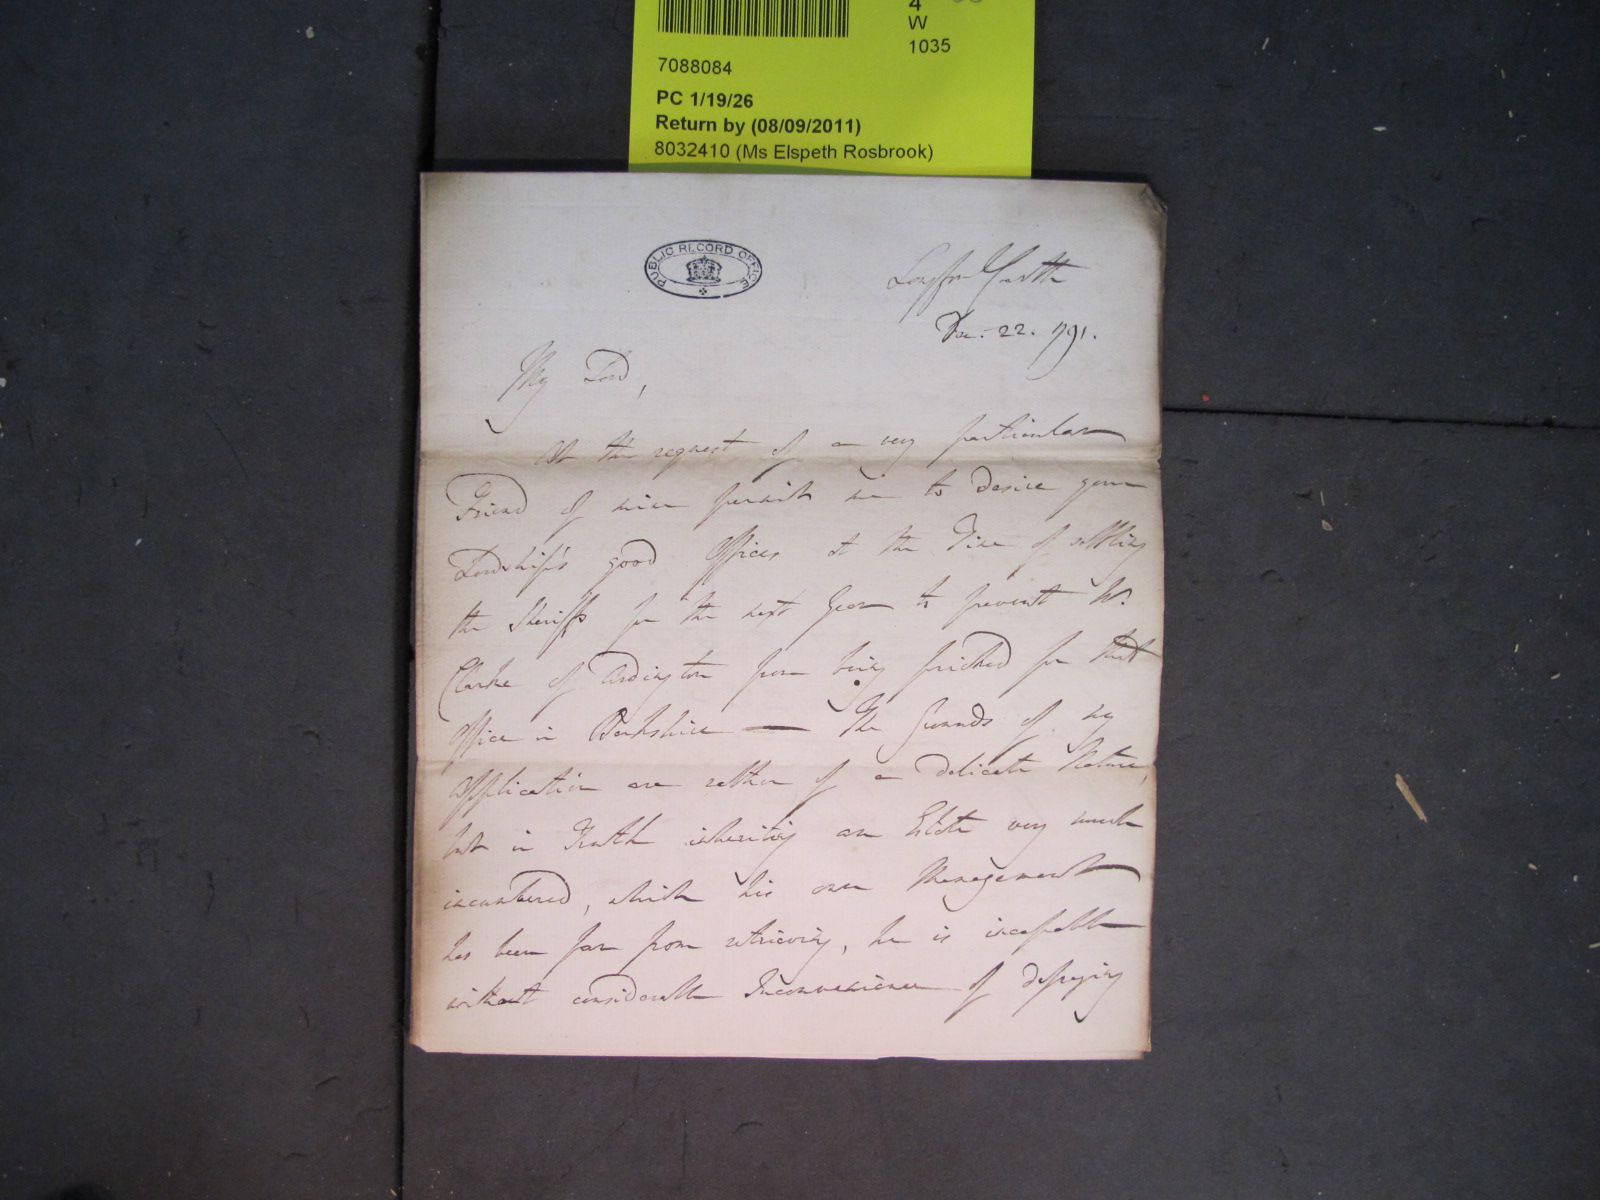 4
W
1035
7088084
PC 1/19/26
Return by (08/09/2011)
8032410 (Ms Elspeth Rosbrook)
PUBLIC RECORD OFFICE
Dec. 22. 1791.
My Lord,
At the request of a very particular
Friend of mine permit me to desire your
Lordship's good Offices at the Time of settling
the Sheriffs for the next Year to prevent Mr.
Clarke of Ardington from being pricked for that
Office in Berkshire — The Grounds of my
Application are rather of a delicate Nature,
but in Truth inheriting an Estate very much
incumbered, which his own Management
has been far from retrieving, he is incapable
without considerable Inconvenience of defraying